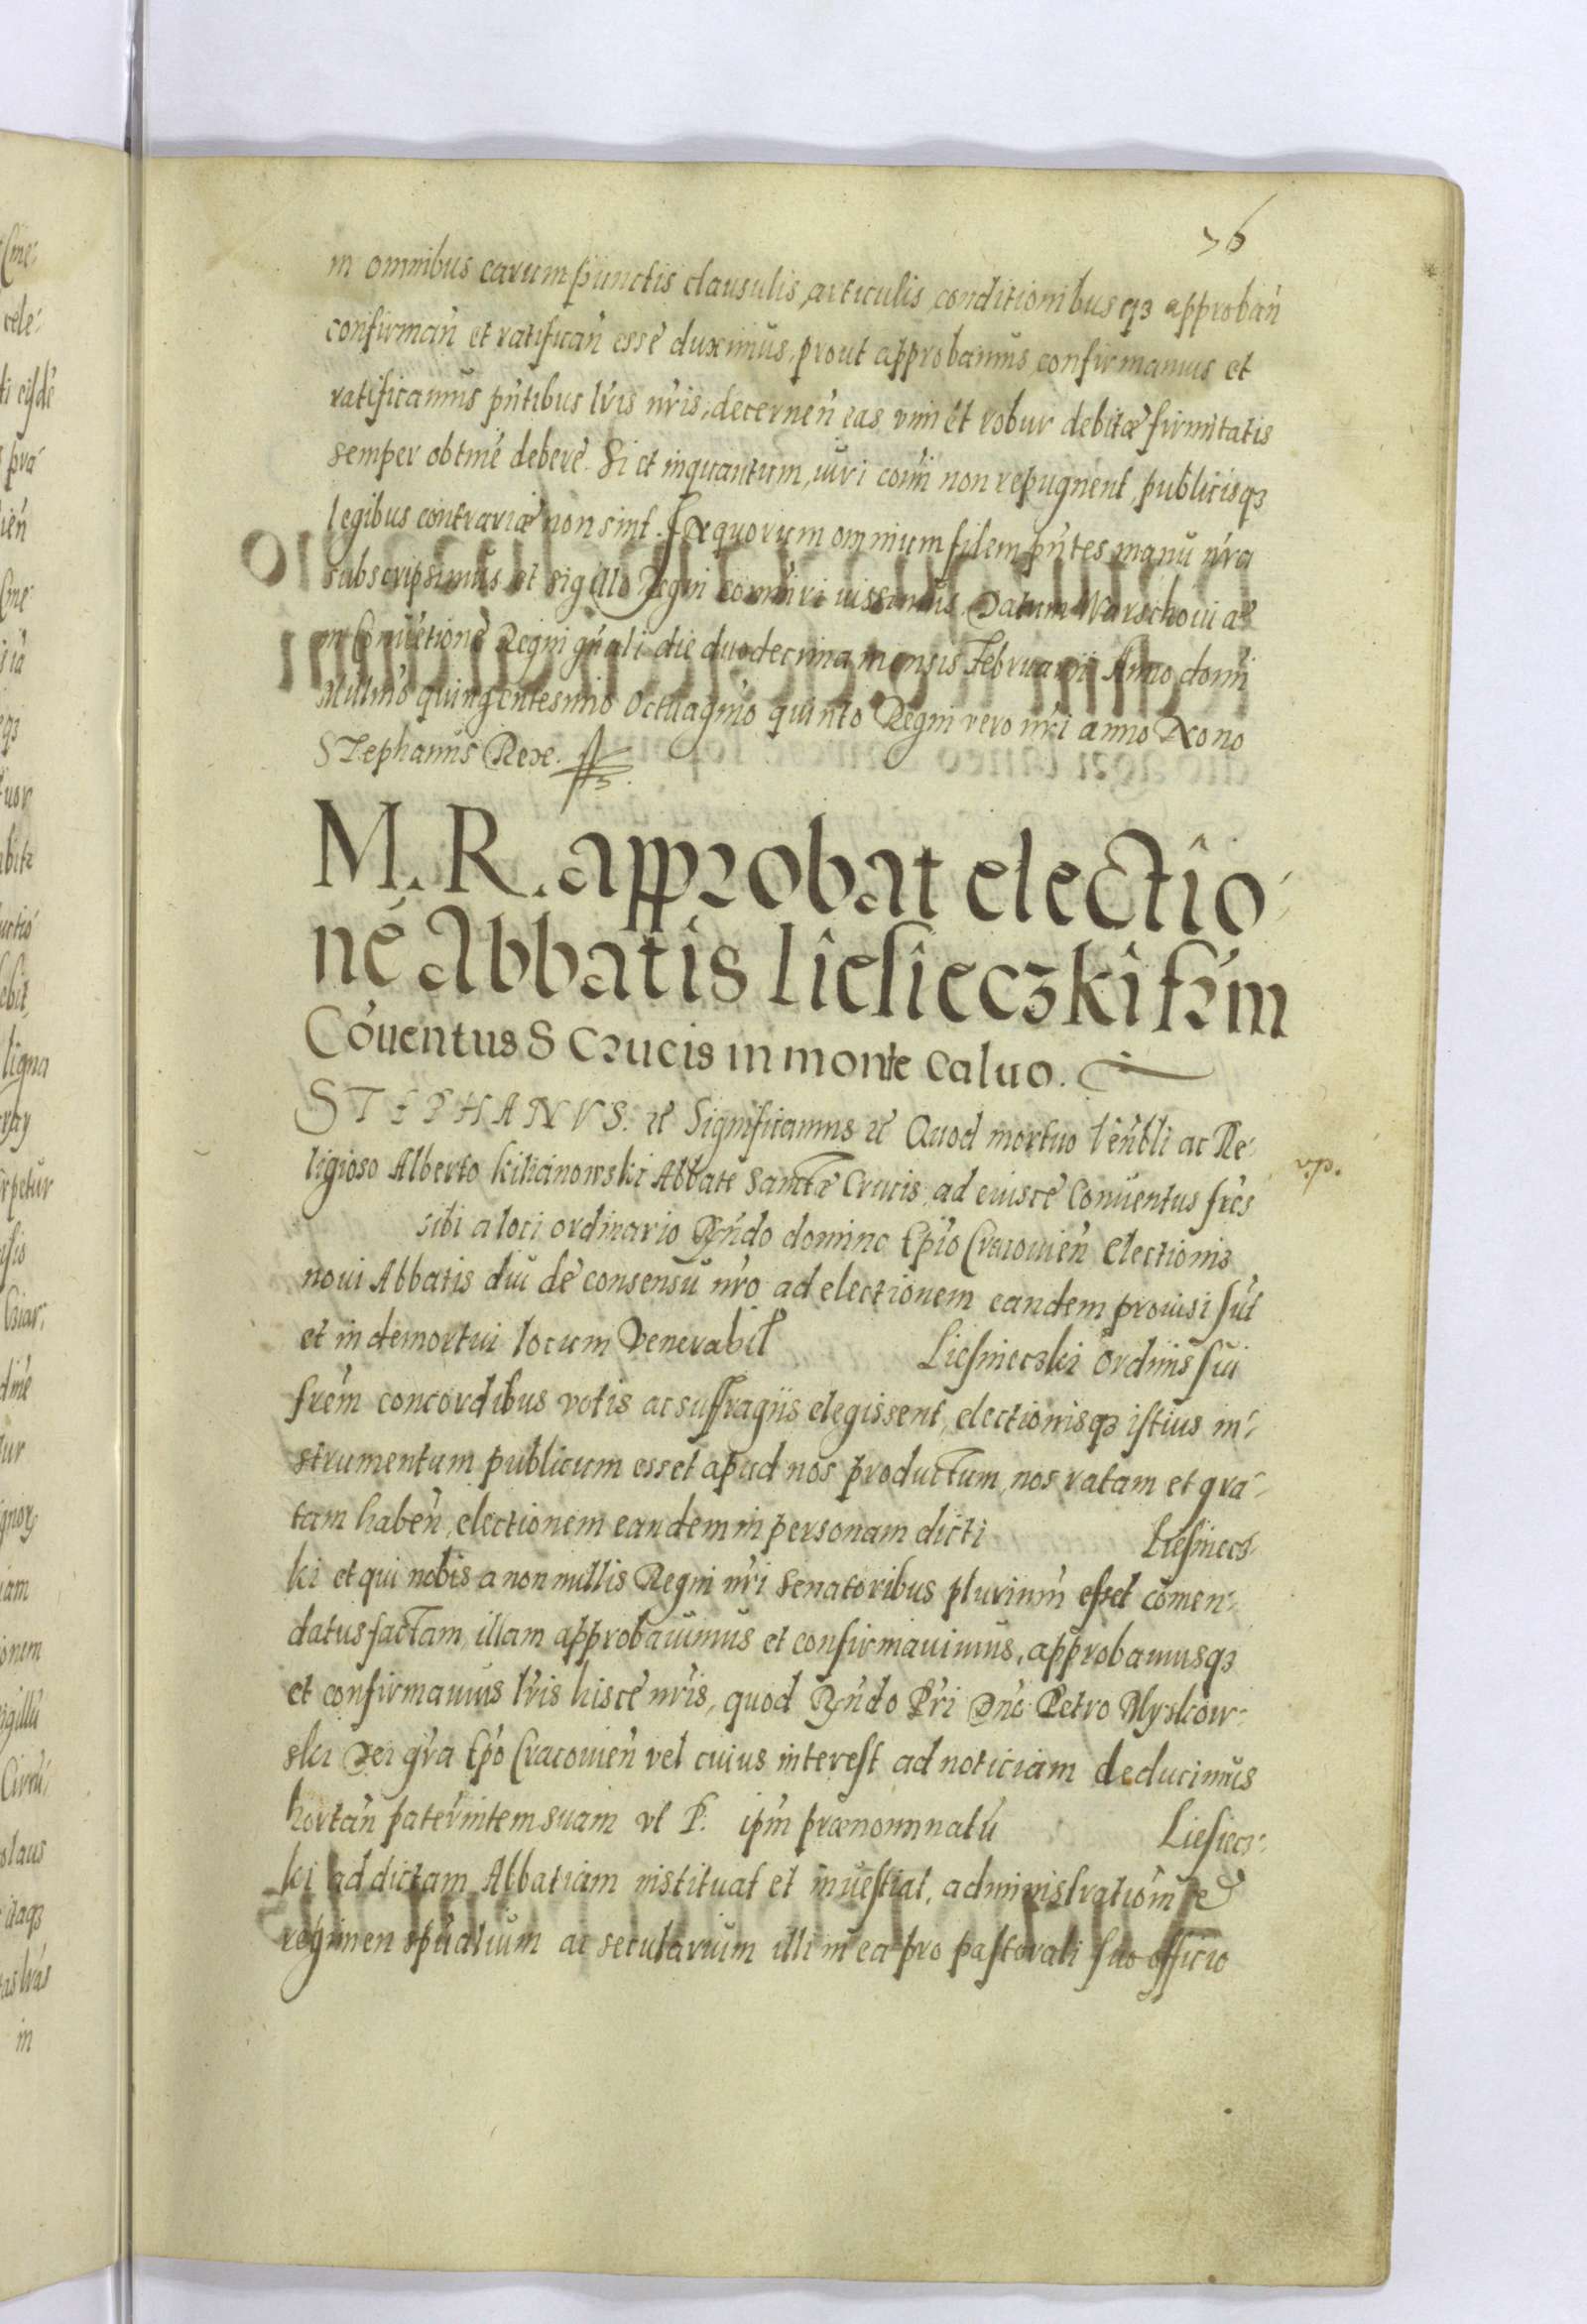 76
in omnibus earum punctis clausulis, articulis conditionibusqꝫ approbań
confirmań et ratificań esse duximus, prout approbamus confirmamus et
ratificamus pńtibus lŕis nŕis, decerneń eas vim et robur debitæ firmitatis
semper obtine debere. Si et inquantum, iuri coḿi non repugnent, publicisqꝫ
legibus contrariæ non sint. In quorum omnium fidem pńtes manu nŕa
subscripsimus et sigillo Regni comuniri iussimus. Datum Warschouiae
in Conuētione Regni gńali die duodecima mensis Februarii Anno domi
Millmo quingentesimo octuagmo quinto Regni vero nŕi anno Nono
STephanus Rex.
M. R. approbat electio
né Abbatis Liesieczki frém
Cóuentus S Crucis in monte Caluo.
STEPHANVS. ꝛc̃ Significamus ꝛc̃ Quod mortuo Veńbli ac Re
ligioso Alberto Kilianowski Abbate Sanctæ Crucis, ad eiusce Conuentus frés
sibi a loci ordinario Rńdo domino Epío Cracouień electionis
noui Abbatis diu de consensu nŕo ad electionem eandem prouisi sút
et in demortui locum Venerabil Liesniecski ordinis sui
frém concordibus votis ac suffragiis elegissent, electionisqꝫ istius in
strumentum publicum esset apud nos productum, nos ratam et gra
tam habeń electionem eandem in personam dicti Liesniecs
ki et qui nobis a non nullis Regni nŕi Senatoribus plurimú esset comen
datus factam, illam approbauimus et confirmauimus, approbamusqꝫ
et confirmamus lŕis hisce nŕis, quod Rńdo Pŕi Dńo Petro Myskow
ski Dei gŕa Epó Cracouień vel cuius interest ad noticiam deducimus
hortań paternitem suam vt P. ipḿ prænominatú Liesiecz
ki ad dictam Abbatiam instituat et inuestiat, administratióm et
regimen spúalium ac secularium illi in ea pro pastorali suo officio